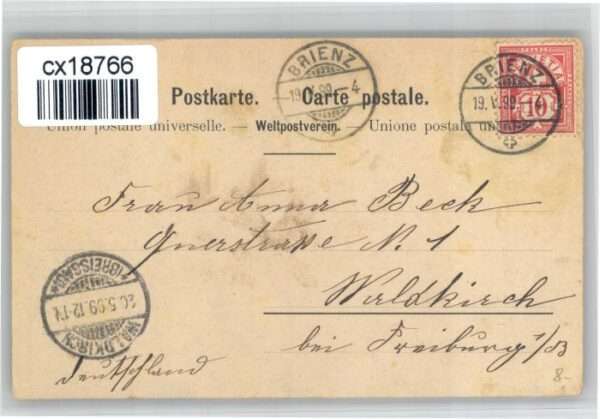 cx18766
BRIENZ
19. V. 99 - 4
BRIENZ
19. V. 99 - 4
10
Postkarte. — Carte postale.
Union postale universelle. — Weltpostverein. — Unione postale
Frau Anna Beck
Querstrasse N. 1
Waldkirch
bei Freiburg i/B
Deutschland
WALDKIRCH (BREISGAU)
20.5.99.12-1N.
8.-